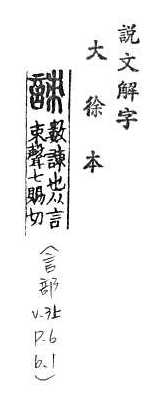 說文解字
大徐本
諫
數諫也从言
朿聲七賜切
（言部
V.3上
P.6
b.1）